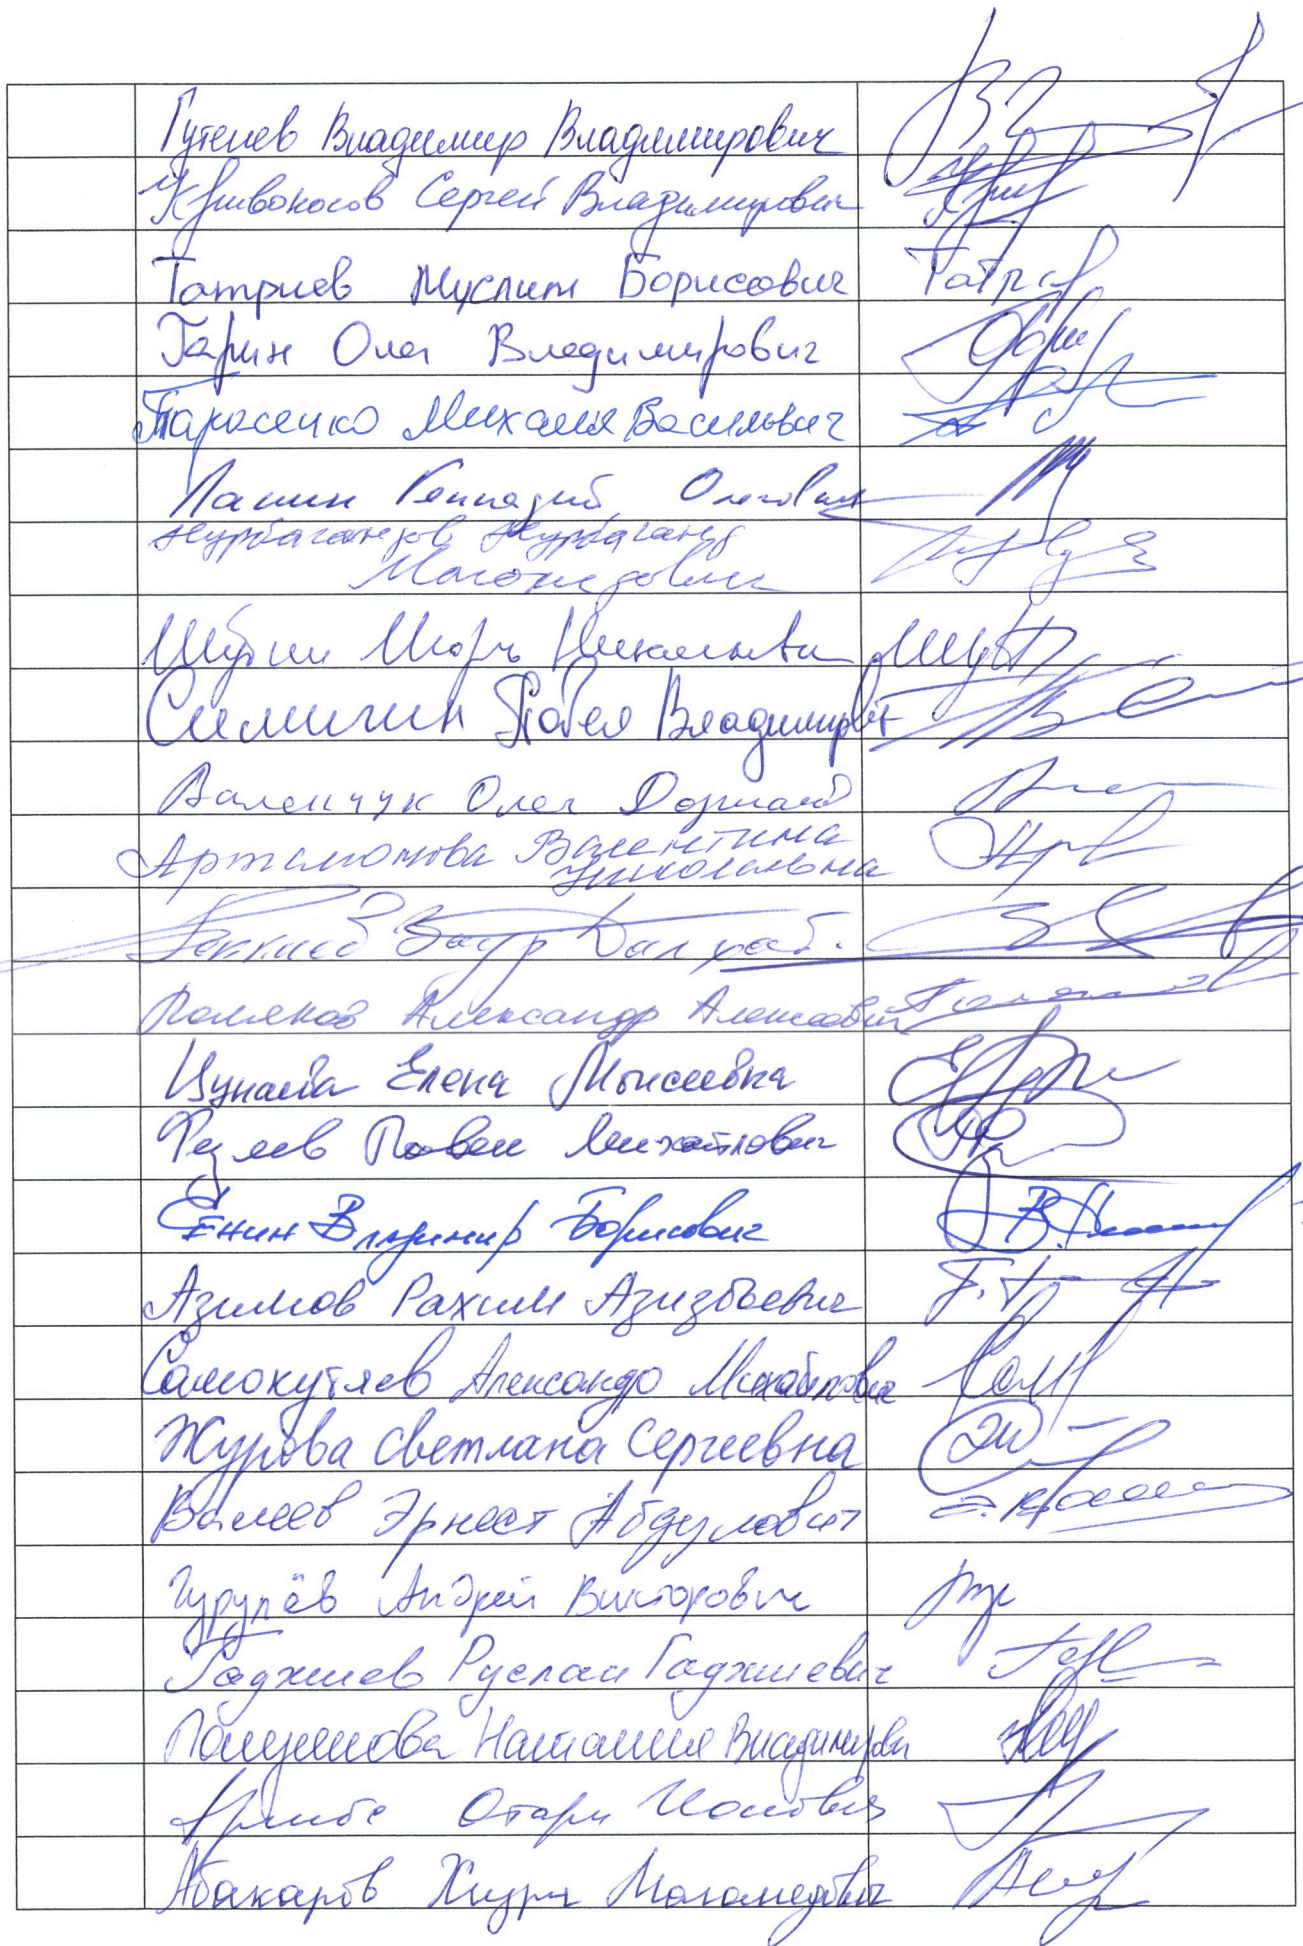 Гутенев Владимир Владимирович
Кривоносов Сергей Владимирович
Татриев Муслим Борисович Татри
Гарин Олег Владимирович
Тарасенко Михаил Васильевич
Панин Геннадий Олегович
Нурбагандов Нурбаганд
Магомедович
Шубин Игорь Николаевич Шуб
Симигин Павел Владимирович
Валенчук Олег Дорианович
Артамонова Валентина
Николаевна
Геккиев Заур Далхат.
Поляков Александр Алексеевич
Цунаева Елена Моисеевна
Федяев Павел Михайлович
Сенин Владимир Борисович
Азимов Рахим Азизбоевич
Самокутяев Александр Михайлович Сам
Журова Светлана Сергеевна
Валеев Эрнест Абдулович
Гурулёв Андрей Викторович
Гаджиев Руслан Гаджиевич
Полуянова Наталия Владимировн
Аршба Отари Ионович
Абакаров Хизри Магомедович